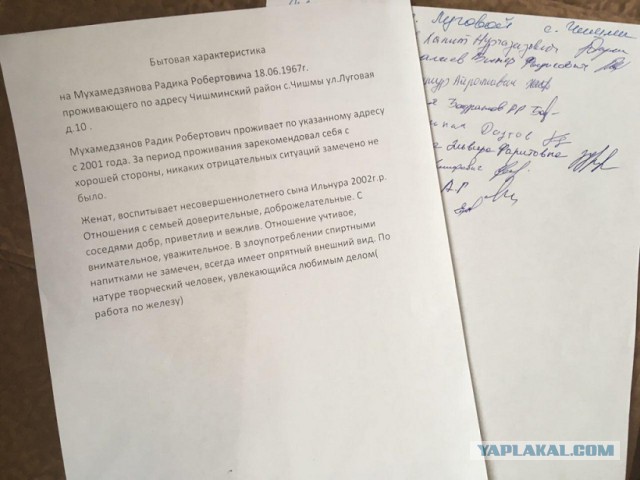 Бытовая характеристика
на Мухамедзянова Радика Робертовича 18.06.1967г.
проживающего по адресу Чишминский район с.Чишмы ул.Луговая
д 10 .
Мухамедзянов Радик Робертович проживает по указанному адресу
с 2001 года. За период проживания зарекомендовал себя с
хорошей стороны, никаких отрицательных ситуаций замечено не
было.
Женат, воспитывает несовершеннолетнего сына Ильнура 2002г.р.
Отношения с семьей доверительные, доброжелательные. С
соседями добр, приветлив и вежлив. Отношение учтивое,
внимательное, уважительное. В злоупотреблении спиртными
напитками не замечен, всегда имеет опрятный внешний вид. По
натуре творческий человек, увлекающийся любимым делом(
работа по железу)
Луговой с. Чишмы
Эльвира Фаритовна
А.Р
YAPLAKAL.COM